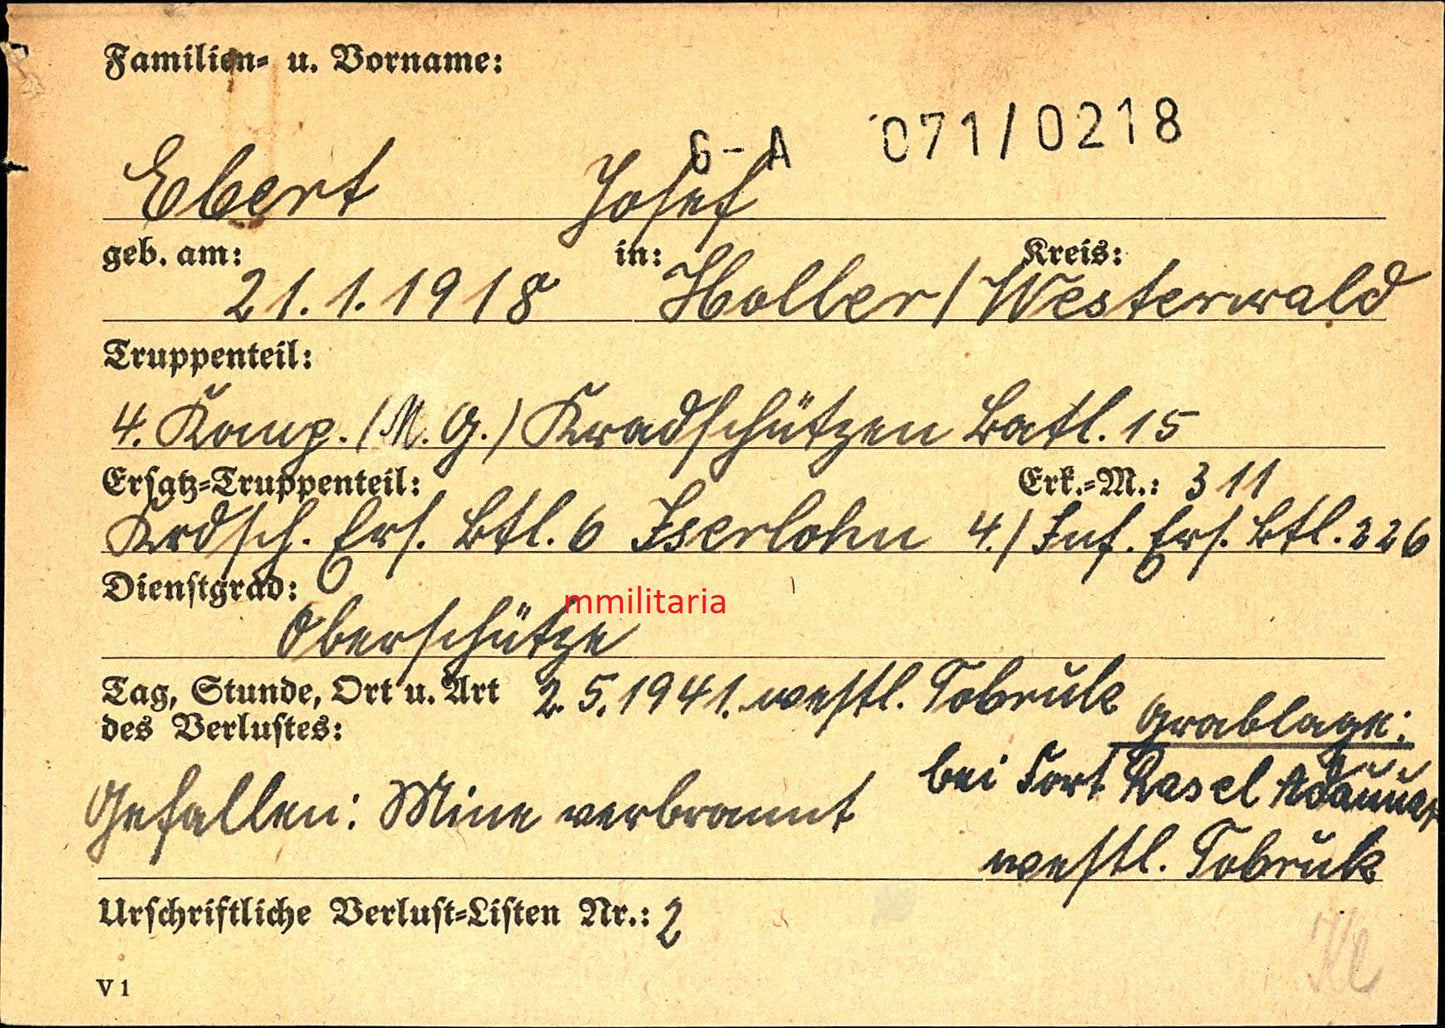 Familien- u. Vorname:
G-A 071/0218
Ebert Josef
geb. am: in: Kreis:
21.1.1918 Holler/Westerwald
Truppenteil:
4. Komp. (M.G.) Kradschützen Batl. 15
Ersatz-Truppenteil: Erk.-M.: 311
Krdsch. Ers. Btl. 6 Iserlohn 4./Inf. Ers. Btl. 226
Dienstgrad:
mmilitaria
Oberschütze
Tag, Stunde, Ort u. Art 2.5.1941. westl. Tobruk
des Verlustes:
Grablage:
bei Fort Rasel
Gefallen: Mine verbrannt
westl. Tobruk
Urschriftliche Verlust-Listen Nr.: 2
V 1